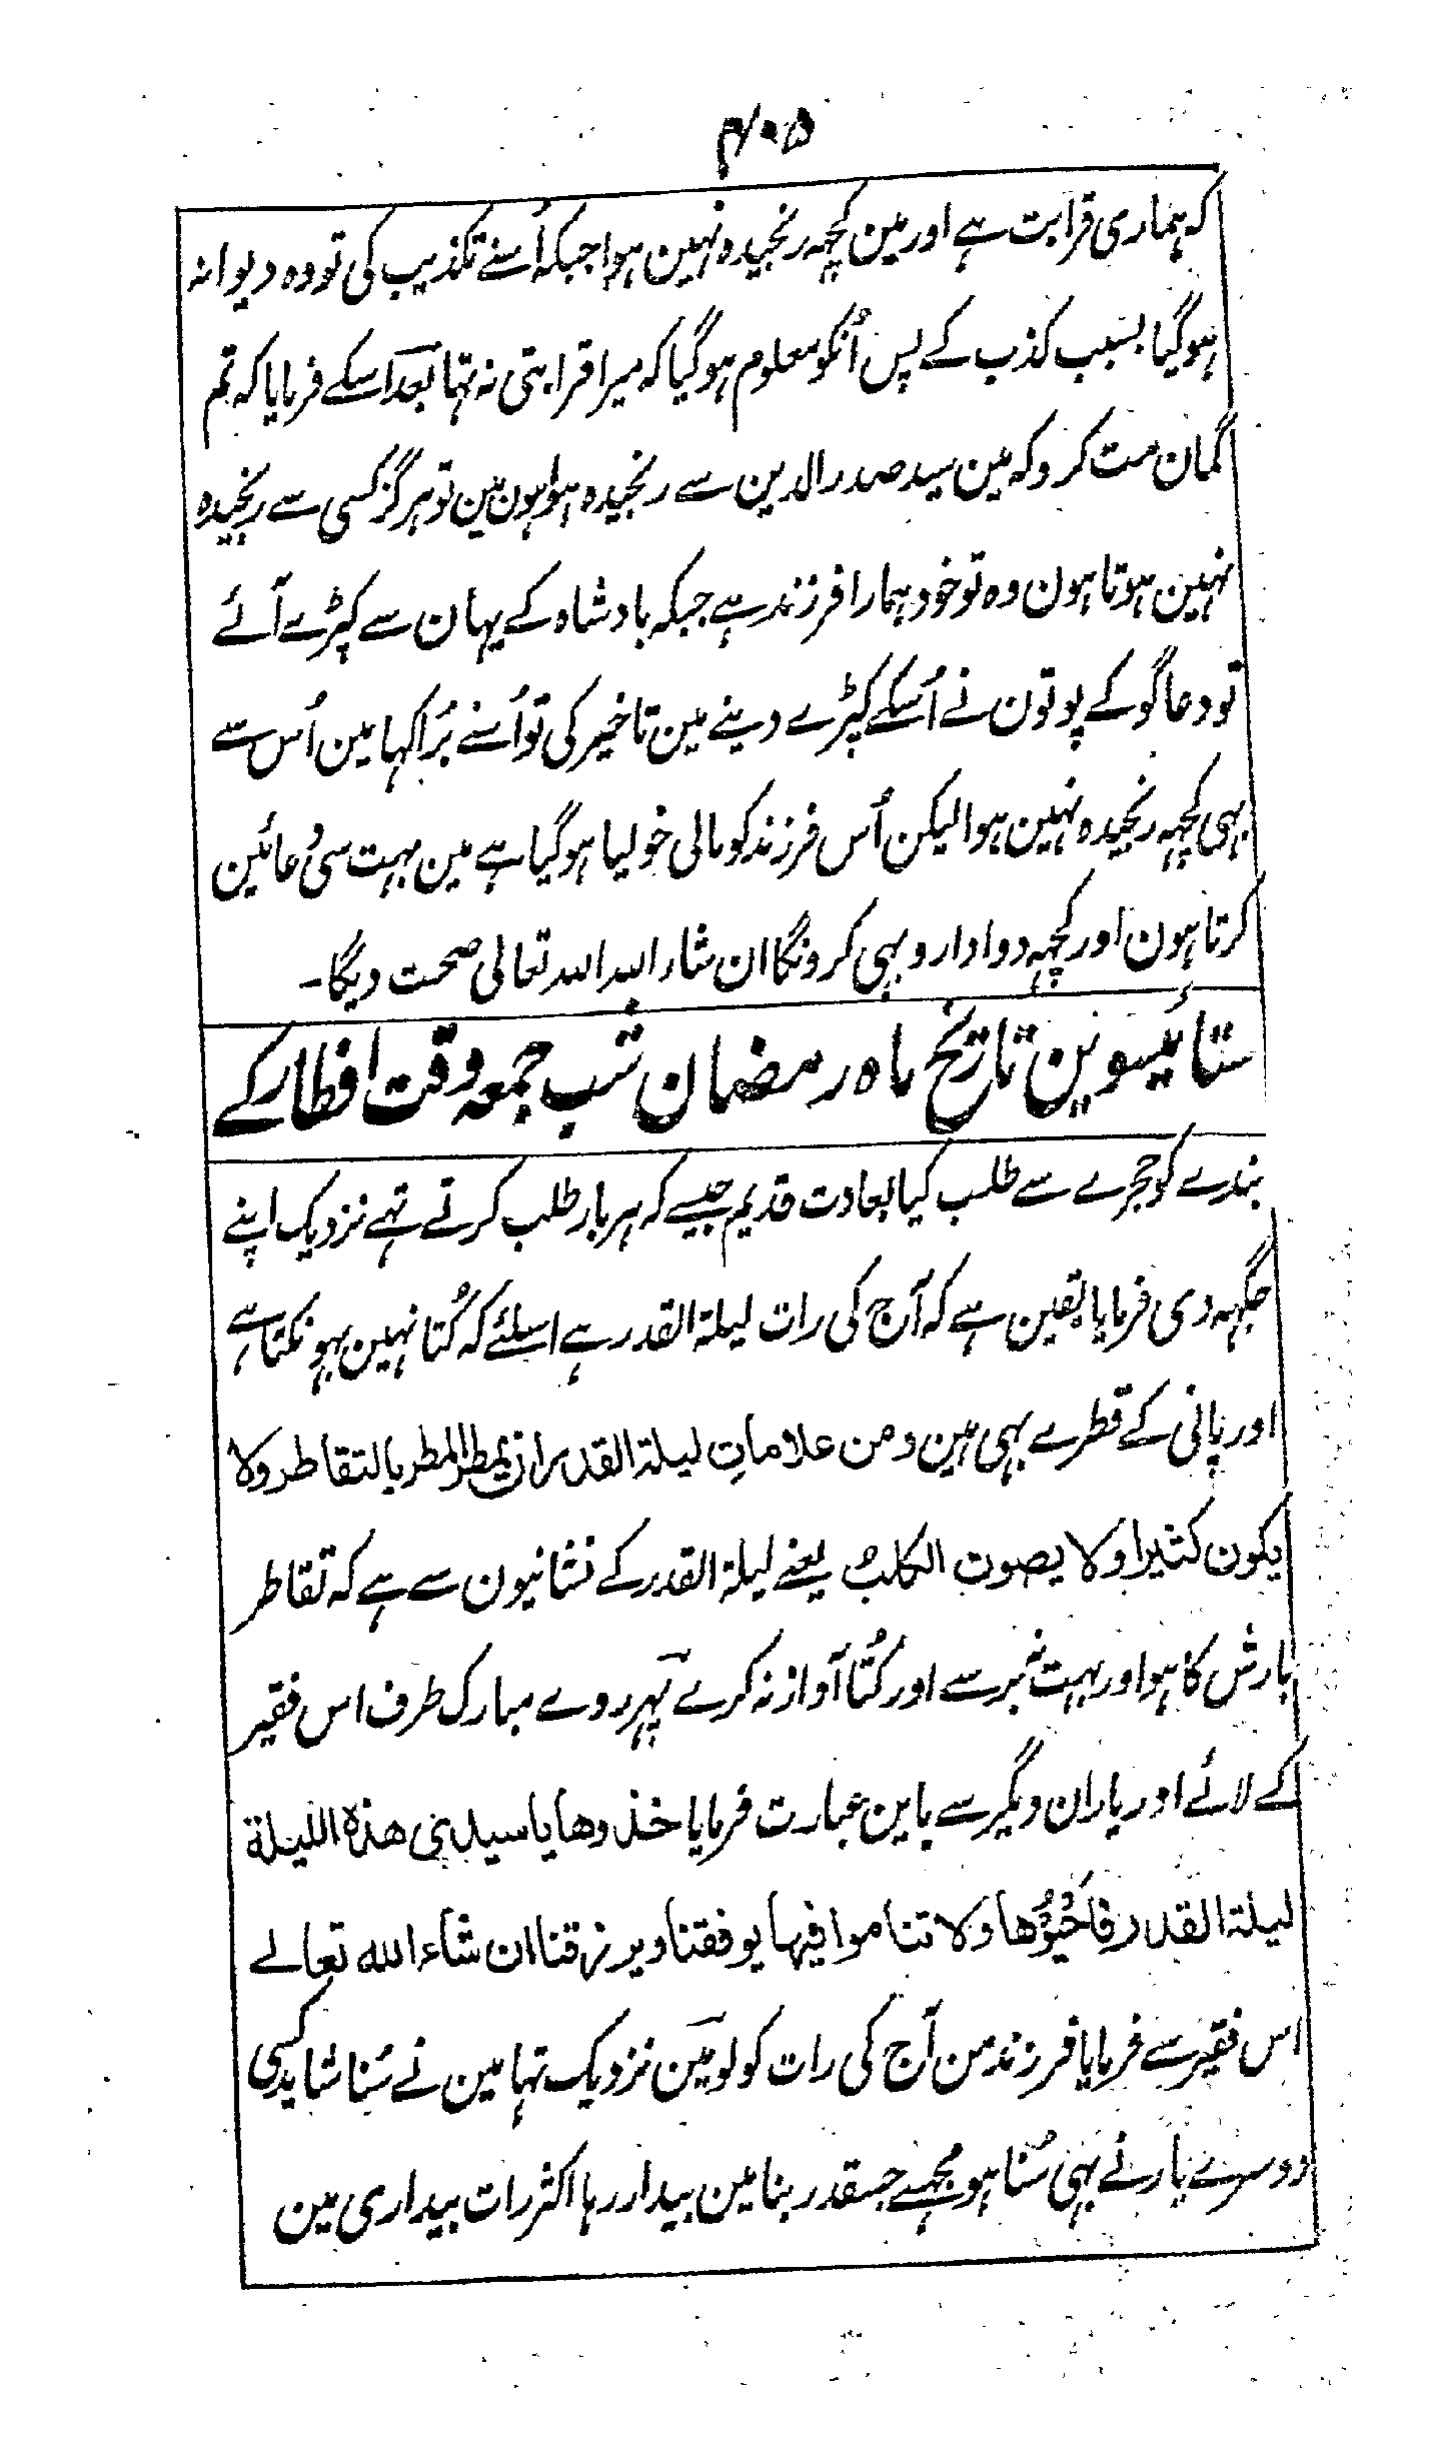 ۴۰۵
کہ ہماری قرابت ہے اور مین کچہہ رنجیدہ نہین ہوا جبکہ اُسنے تکذیب کی تو وہ دیوانہ
ہو گیا بسبب کذب کے پس اُنکو معلوم ہو گیا کہ میرا قرابتی نہ تہا بعد اسکے فرمایا کہ تم
گمان مت کرو کہ مین سید صدر الدین سے رنجیدہ ہوا ہون مین تو ہرگز کسی سے رنجیدہ
نہین ہوتا ہون وہ تو خود ہمارا فرزند ہے جبکہ بادشاہ کے یہان سے کپڑے آئے
تو دعاگو کے پوتون نے اُسکے کپڑے دینے مین تاخیر کی تو اُسنے بُرا کہا مین اُس سے
بہی کچہہ رنجیدہ نہین ہوا لیکن اُس فرزند کو مالی خولیا ہو گیا ہے مین بہت سی دُعائین
کرتا ہون اور کچہہ دوا دارو بہی کرونگا ان شاء اللہ اللہ تعالی صحت دیگا۔
ستائیسوین تاریخ ماہ رمضان شب جمعہ وقت افطار کے
بندے کو حجرے سے طلب کیا بعادت قدیم جیسے کہ ہر بار طلب کرتے تہے نزدیک اپنے
جگہہ دی فرمایا یقین ہے کہ آج کی رات لیلۃ القدر ہے اسلئے کہ کُتا نہین بہونکتا ہے
اور پانی کے قطرے بہی ہین ومن علاماتِ لیلۃ القدر ان یمطر المطر بالتقاطر ولا
یکون کثیرا ولا یصوت الکلبُ یعنے لیلۃ القدر کے نشانیون سے ہے کہ تقاطر
بارش کا ہو اور بہت نہ برسے اور کُتا آواز نہ کرے پہر روے مبارک طرف اس فقیر
کے لائے اور یاران دیگر سے باین عبارت فرمایا خذوها یا سیدی هذه اللیلة
لیلة القدر فاَحْیُوْها ولا تناموا فیها یوفقنا ویرزقنا ان شاء الله تعالے
اس فقیر سے فرمایا فرزند من آج کی رات کو لو مین نزدیک تہا مین نے سُنا شاید کسی
دوسرے یار نے بہی سُنا ہو مجہسے جسقدر بنا مین بیدار رہا اکثر رات بیداری مین